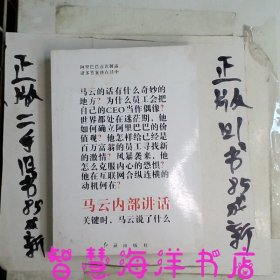 阿里巴巴首次解密
诸多答案就在其中
马云的话有什么奇妙的
地方？为什么员工会把
自己的CEO当作偶像？
世界都处在迷茫期，他
如何确立阿里巴巴的价
值观？他怎样给已经是
百万富翁的员工寻找新
的激情？风暴袭来，他
怎么克服内心的恐惧？
他在互联网合纵连横的
动机何在？
马云内部讲话
关键时，马云说了什么
红旗出版社
正版二手旧书85成新
正版旧书85成新
智慧海洋书店